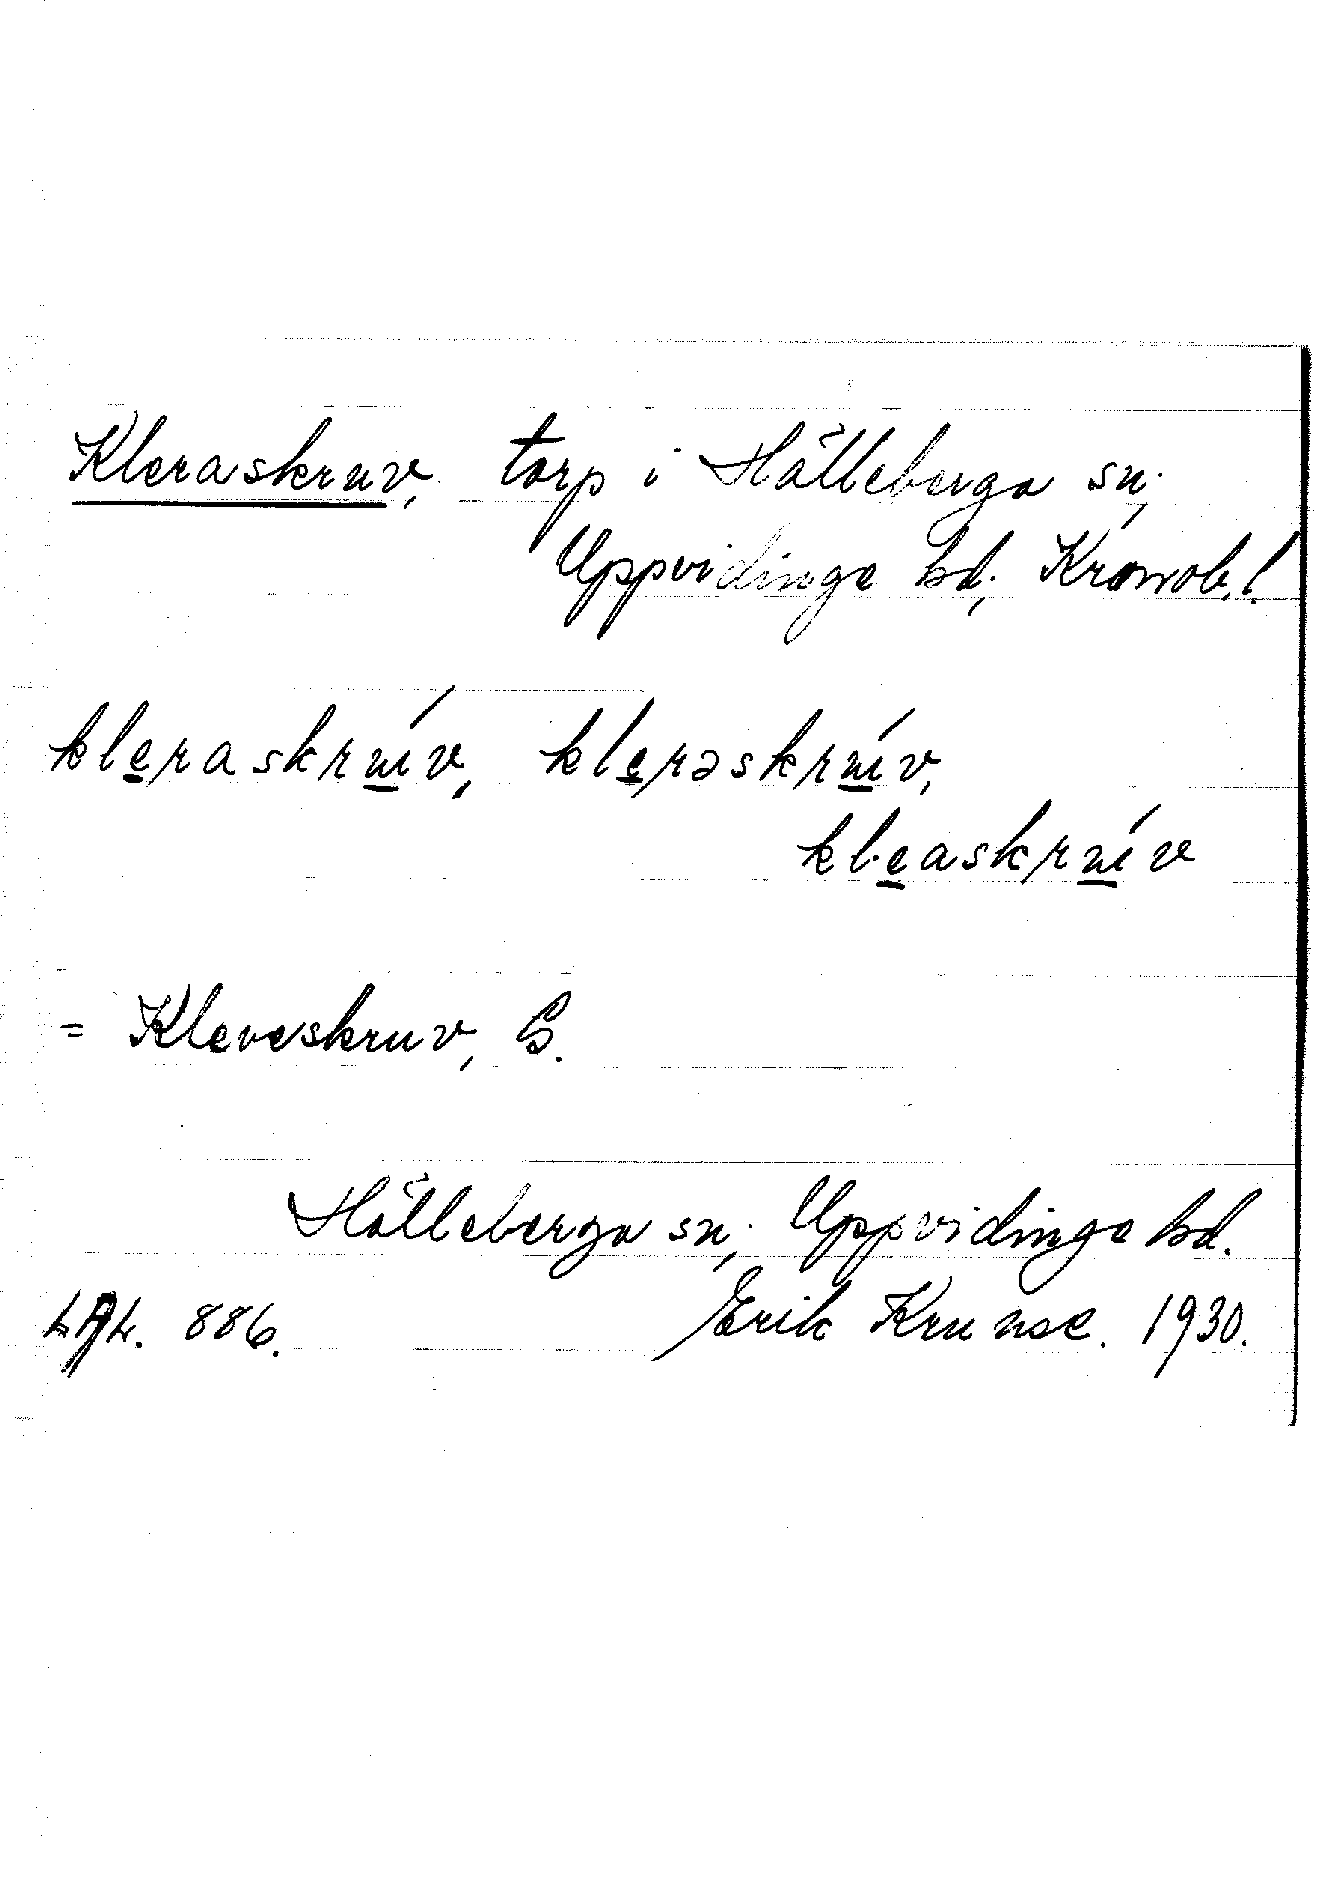 Kleraskruv, torp i Hälleberga sn,
Uppvidinge hd, Kronob. l.
kleraskrúv, klerəskrúv,
kleaskrúv
= Kleveskruv, G.
Hälleberga sn, Uppvidinge hd.
LAL. 886. Erik Kruuse. 1930.